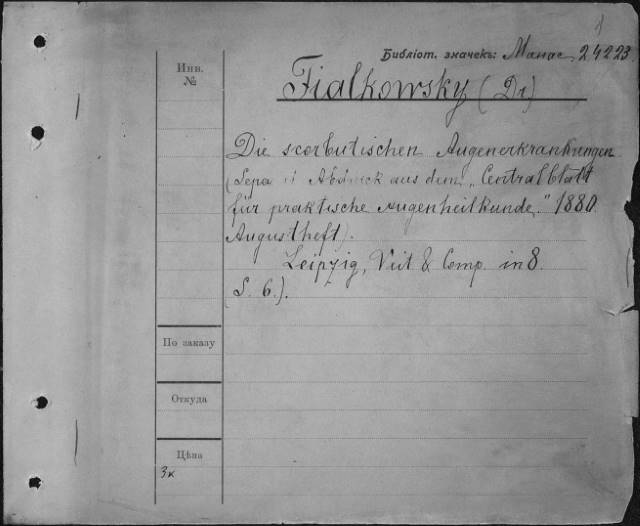 Библіот. значекъ: Манас 24223.
Инв.
№
Fialkowsky (Dr)
Die scorbutischen Augenerkrankungen
(Sepa Abdruck aus dem „Centralblatt
für praktische Augenheilkunde." 1880.
Augustheft).
Leipzig, Veit & Comp. in 8.
(S. 6.).
По заказу
Откуда
Цѣна
3к